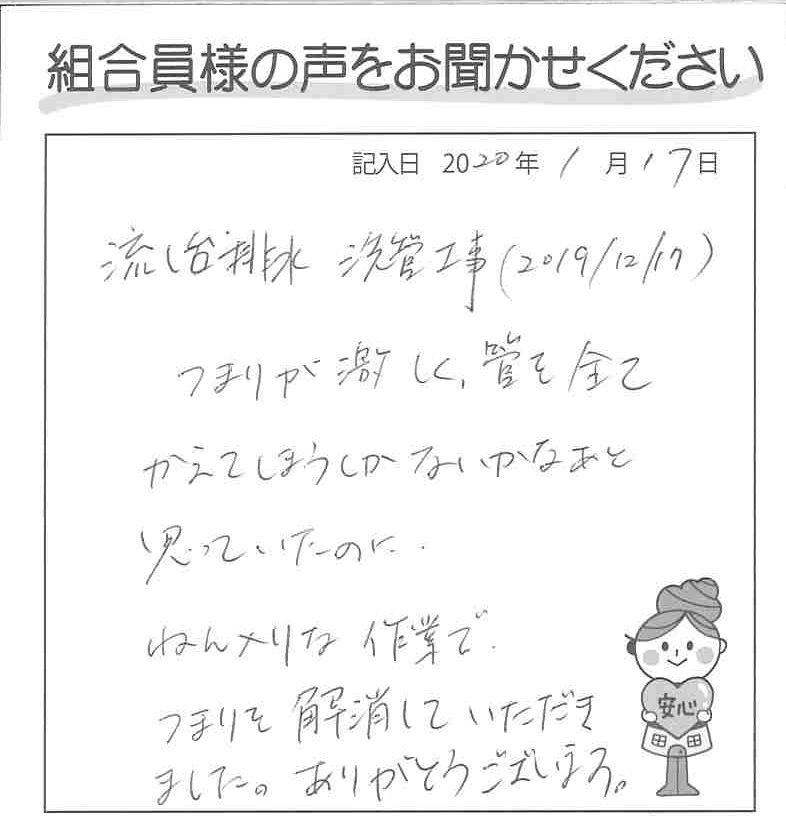 組合員様の声をお聞かせください
記入日 2020年 1月17日
流し台排水 洗管工事(2019/12/17)
つまりが激しく、管を全て
かえてしまうしかないかなあと
思っていたのに.
ねん入りな作業で.
つまりを解消していただき
ました。ありがとうございます。
安心